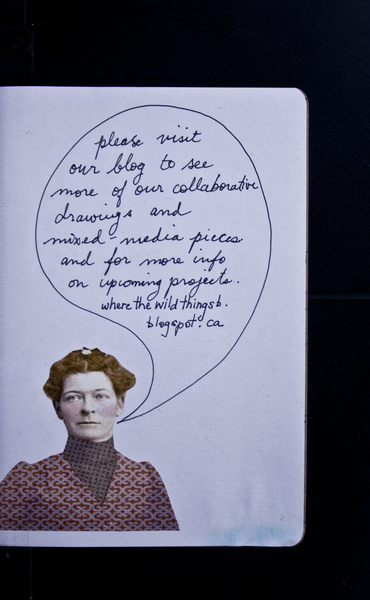 please visit
our blog to see
more of our collaborative
drawings and
mixed-media pieces
and for more info
on upcoming projects.
where the wild things b.
blogspot.ca